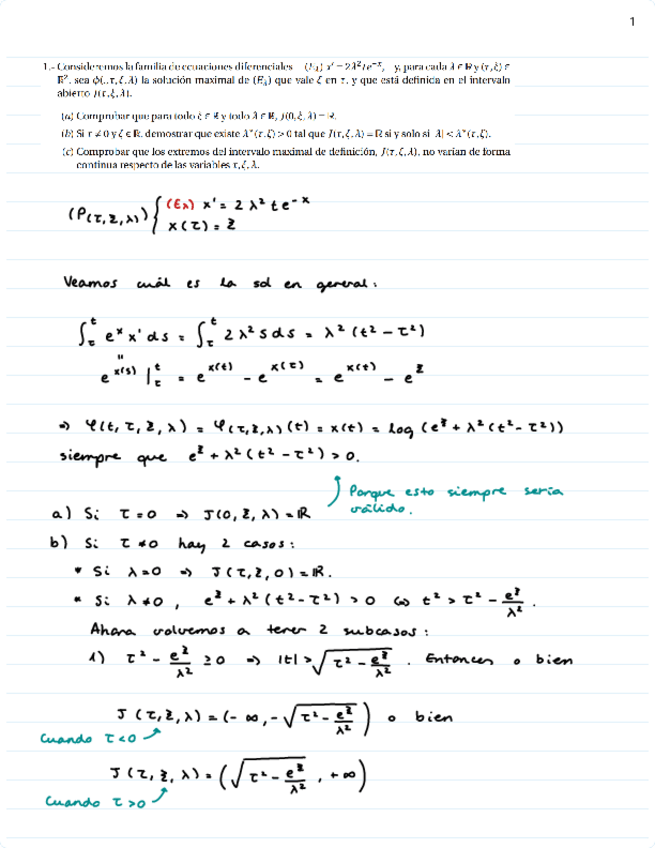 1
1.- Consideremos la familia de ecuaciones diferenciales (E_λ) x' = 2λ²te⁻ˣ, y, para cada λ ∈ ℝ y (τ, ξ) ∈
ℝ², sea ϕ(., τ, ξ, λ) la solución maximal de (E_λ) que vale ξ en τ, y que está definida en el intervalo
abierto J(τ, ξ, λ).
(a) Comprobar que para todo ξ ∈ ℝ y todo λ ∈ ℝ, J(0, ξ, λ) = ℝ.
(b) Si τ ≠ 0 y ξ ∈ ℝ, demostrar que existe λ*(τ, ξ) > 0 tal que J(τ, ξ, λ) = ℝ si y solo si |λ| < λ*(τ, ξ).
(c) Comprobar que los extremos del intervalo maximal de definición, J(τ, ξ, λ), no varían de forma
continua respecto de las variables τ, ξ, λ.
(P(τ, ξ, λ)) { (Eλ) x' = 2 λ² t e⁻ˣ
x(τ) = ξ
Veamos cuál es la sol en general:
∫_τ^t eˣ x' ds = ∫_τ^t 2 λ² s ds = λ² (t² - τ²)
"
e^{x(s)} |_τ^t = e^{x(t)} - e^{x(τ)} = e^{x(t)} - e^ξ
⇒ φ(t, τ, ξ, λ) = φ(τ, ξ, λ)(t) = x(t) = log (e^ξ + λ² (t² - τ²))
siempre que e^ξ + λ² (t² - τ²) > 0.
Porque esto siempre sería
válido.
a) Si τ = 0 ⇒ J(0, ξ, λ) = ℝ
b) Si τ ≠ 0 hay 2 casos:
* Si λ = 0 ⇒ J(τ, ξ, 0) = ℝ.
* Si λ ≠ 0, e^ξ + λ² (t² - τ²) > 0 ⇔ t² > τ² - e^ξ/λ².
Ahora volvemos a tener 2 subcasos:
1) τ² - e^ξ/λ² ≥ 0 ⇒ |t| > √(τ² - e^ξ/λ²). Entonces o bien
J(τ, ξ, λ) = (-∞, -√(τ² - e^ξ/λ²)) o bien
Cuando τ < 0
J(τ, ξ, λ) = (√(τ² - e^ξ/λ²), +∞)
Cuando τ > 0